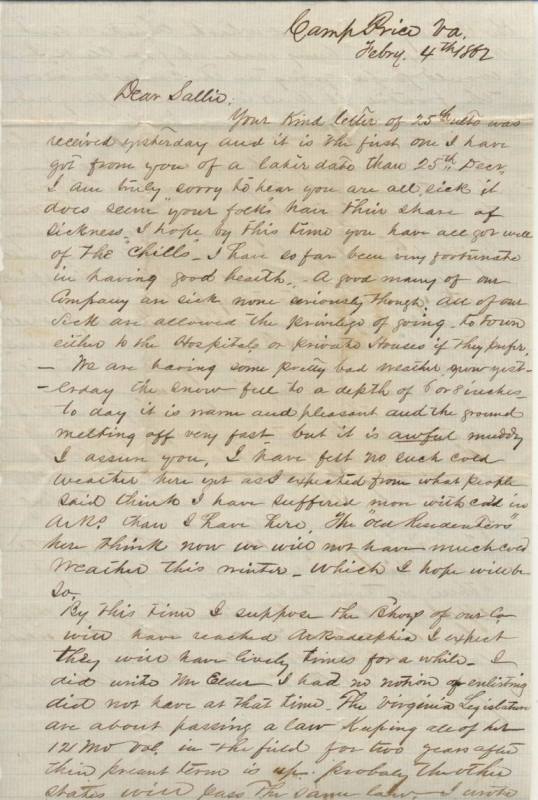 Camp Price Va.
Febry. 4th 1862
Dear Sallie.
Your kind letter of 25th ulto was
received yesterday and it is the first one I have
got from you of a later date than 25th Decr.
I am truly sorry to hear you are all sick it
does seem "your folks hair thair share of
sickness, I hope by this time you have all got well
of the "chills". I have so far been very fortunate
in having good health. A good many of our
Company are sick none seriously though, all of our
sick are allowed the privilege of going to town
either to the Hospitals or private Houses if they prefer.
— We are having some pretty bad weather now yest-
-erday the snow fell to a depth of 6 or 8 inches -
to day it is warm and pleasant and the ground
melting off very fast but it is awful muddy
I assure you, I have felt no such cold
weather here yet as I expected from what people
said think I have suffered more with cold in
Arks. than I have here, The "Old Residenters"
here think now we will not have much cold
weather this winter - which I hope will be
so.
By this time I suppose the Boys of our Co
will have reached Arkadelphia I expect
they will have lively times for a while - I
did write Mr Elder I had no notion of enlisting
did not have at that time. The Virginia Legislature
are about passing a law Keeping all of her
12 Mo Vol. in the field for two years after
their present term is up. probaly the other
states will pass the same law. I wrote